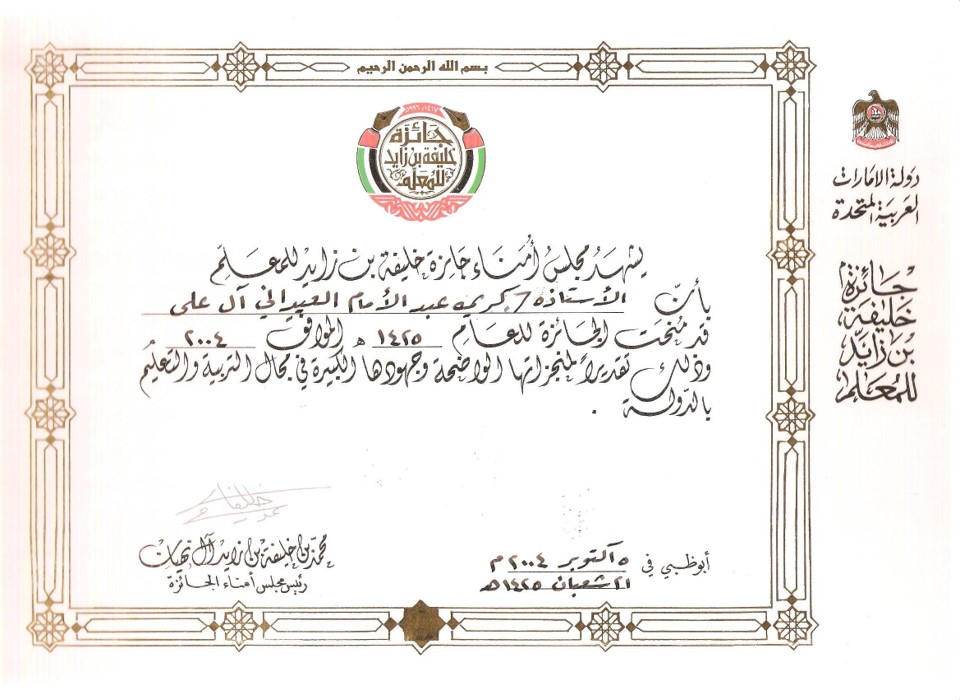 بسم الله الرحمن الرحيم
١٩٩٦ - ١٤١٧
جائزة
خليفة بن زايد
للمعلم
دولة الامارات
العربية المتحدة
جائزة
خليفة
بن زايد
للمعلم
يشهد مجلس أمناء جائزة خليفة بن زايد للمعلم
بأن الأستاذة / كريمه عبد الأمام العيداني آل علي
قد مُنحت الجائزة للعام ١٤٢٥ ه الموافق ٢٠٠٤ م
وذلك تقديراً لمنجزاتها الواضحة وجهودها الكبيرة في مجال التربية والتعليم
بالدولة .
أبوظبي في ٥ أكتوبر ٢٠٠٤ م
٢١ شعبان ١٤٢٥هـ
محمد بن خليفة بن زايد آل نهيان
رئيس مجلس أمناء الجائزة